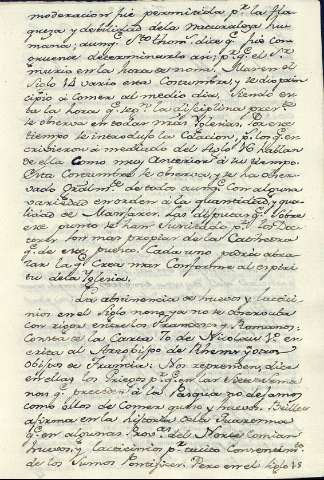 moderacion fue permitida pr. la fla
queza y debilidad de la naturaleza hu
mana; aunq. Sto. Thom. dice q. fue con
veniente determinarlo asi, pr. q. el Sr.
murio en la hora de nona. Mas en el
Siglo 14 vario esta Costumbre, y se dio prin
cipio à comer al medio dia, siendo en
la hora q. segn. la disciplina
se observa en todas mas Iglesias. Por ese
tiempo se introdujo la Colacion, pr. lo q. es
cribieron à mediado del siglo 16 hablan
de ella como muy anterior à su tiempo.
Esta Costumbre se observa, y se ha obser
vado de todos aunq. con alguna
variedad en orden à la quantidad, y qua
lidad de Manjares. Las disputas q. sobre
ese punto se han suscitado pr. los Doc
tores son mas propias de la Cathedra
q. de este puesto. Cada uno podrà abra
zar la q. Crea mas Conforme al espiri
tu de la Iglesia.
La abstinencia de huevos y lactici
nios en el Siglo nono ya no se observaba
con rigor entre los Franceses y Romanos:
Consta de la Carta 70 de Nicolao 1o. es
crita al Arzobispo de Rhems y otros
Obispos de Francia: Nos reprenden, dice
en ellas los Griegos pr. q. en las
nas q. preceden à la Pasqua no dejamos
como ellos de Comer queso y huevos. Baillet
afirma en la historia de la Quaresma
q. en algunas Provas. del Norte comian
huevos y lacticinios pr. tacito Consentimto.
de los Sumos Pontifices. Pero en el siglo